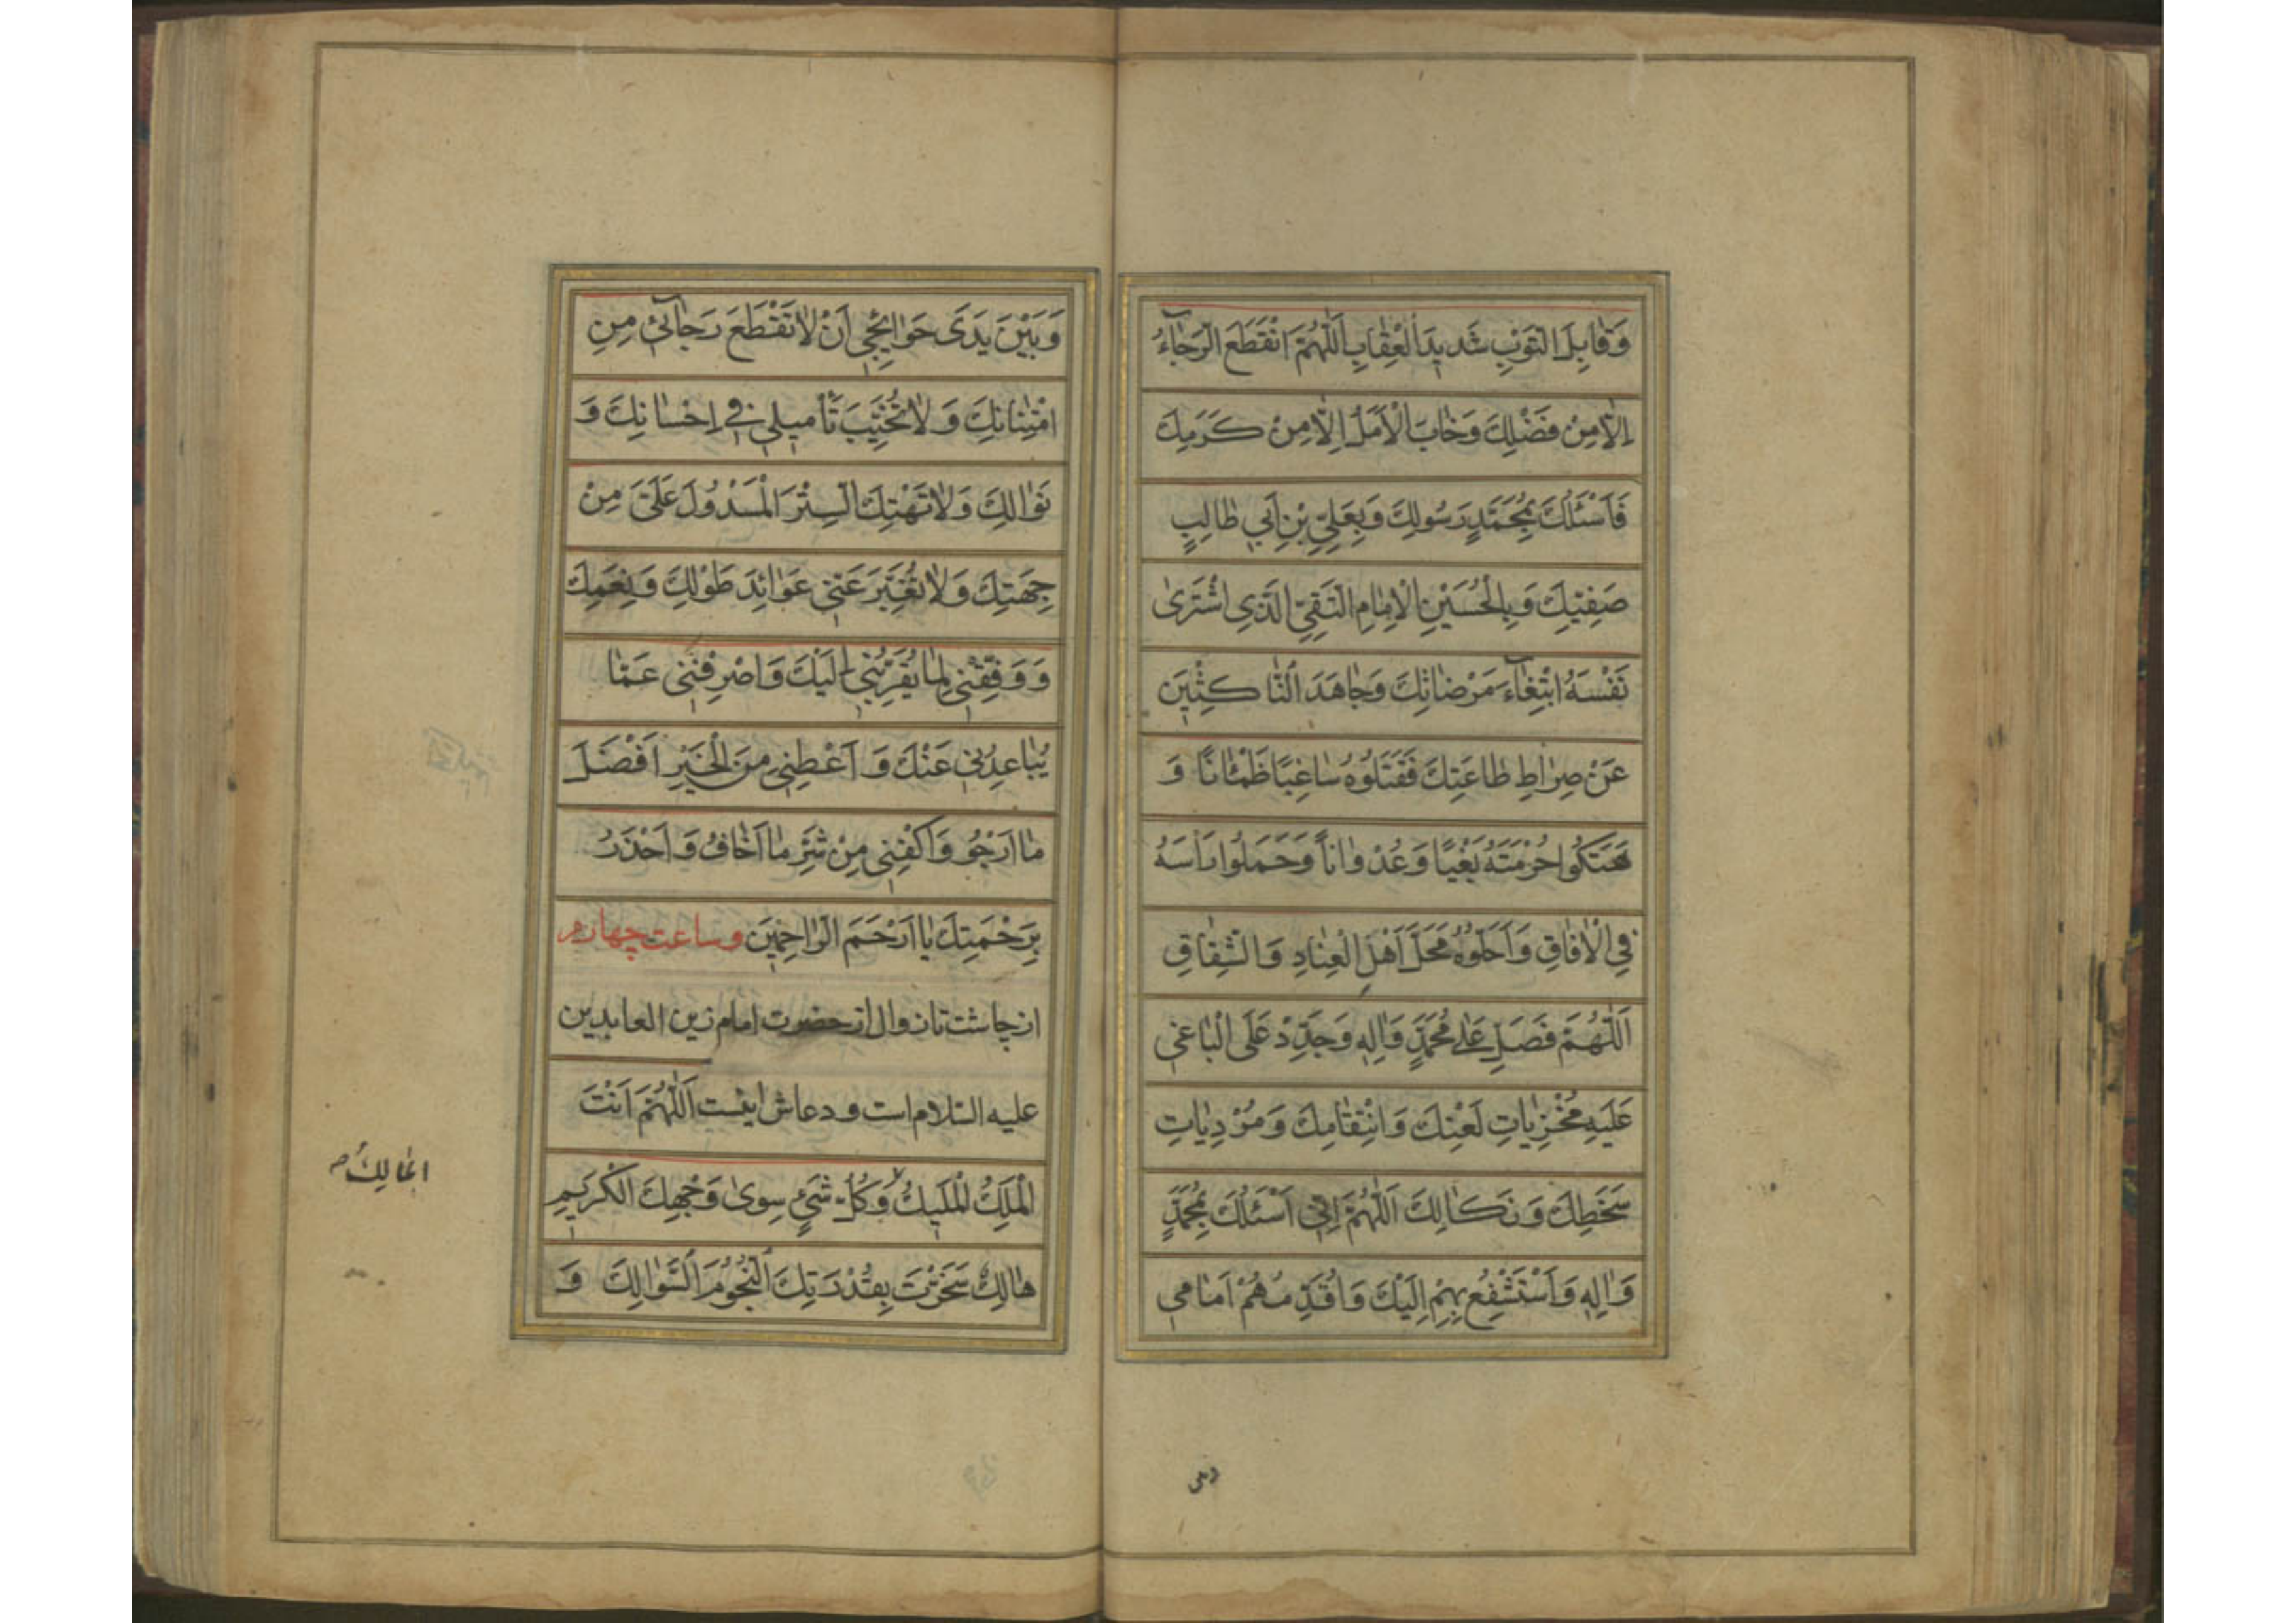 وَقٰابِلَ التَّوْبِ شَديدَ الْعِقٰابِ اَللّٰهُمَّ انْقَطَعَ الرَّجٰآءُ
اِلّٰا مِنْ فَضْلِكَ وَخٰابَ الْاَمَلُ اِلّٰا مِنْ كَرَمِكَ
فَاَسْئَلُكَ بِمُحَمَّدٍ رَسُولِكَ وَبِعَلِيِّ بْنِ اَبي طٰالِبٍ
صَفِيِّكَ وَبِالْحُسَيْنِ الْاِمٰامِ التَّقِيِّ الَّذِي اشْتَرىٰ
نَفْسَهُ ابْتِغٰآءَ مَرْضٰاتِكَ وَجٰاهَدَ النّٰاكِثينَ
عَنْ صِرٰاطِ طٰاعَتِكَ فَقَتَلُوهُ سٰاغِبًا ظَمْئٰانًا وَ
هَتَكُوا حُرْمَتَهُ بَغْيًا وَعُدْوٰاناً وَحَمَلُوا رَاْسَهُ
فِي الْاٰفٰاقِ وَاَحَلُّوهُ مَحَلَّ اَهْلِ الْعِنٰادِ وَالشِّقٰاقِ
اَللّٰهُمَّ فَصَلِّ عَلٰى مُحَمَّدٍ وَاٰلِهِ وَجَدِّدْ عَلَى الْبٰاغي
عَلَيْهِ مُخْزِيٰاتِ لَعْنِكَ وَانْتِقٰامِكَ وَمُرْدِيٰاتِ
سَخَطِكَ وَنَكٰالِكَ اَللّٰهُمَّ اِنّي اَسْئَلُكَ بِمُحَمَّدٍ
وَاٰلِهِ وَاَسْتَشْفِعُ بِهِمْ اِلَيْكَ وَاُقَدِّمُهُمْ اَمٰامي
وَبَيْنَ يَدَىْ حَوٰائِجي اَنْ لٰا تَقْطَعَ رَجٰآئي مِنِ
امْتِنٰانِكَ وَلٰا تُخَيِّبَ تَاْميلي في اِحْسٰانِكَ وَ
نَوٰالِكَ وَلٰا تَهْتِكَ السِّتْرَ الْمَسْدُولَ عَلَيَّ مِنْ
جِهَتِكَ وَلٰا تُغَيِّرَ عَنّي عَوٰائِدَ طَوْلِكَ وَنِعَمِكَ
وَوَفِّقْني لِمٰا يُقَرِّبُني اِلَيْكَ وَاصْرِفْني عَمّٰا
يُبٰاعِدُني عَنْكَ وَ اَعْطِني مِنَ الْخَيْرِ اَفْضَلَ
مٰا اَرْجُو وَاكْفِني مِنْ شَرِّ مٰا اَخٰافُ وَاَحْذَرُ
بِرَحْمَتِكَ يٰا اَرْحَمَ الرّٰاحِمينَ وساعت چهارم
از چاشت تا زوال از حضرت امام زين العابدين
عليه السّلام است و دعاش اينست اَللّٰهُمَّ اَنْتَ
الْمَلِكُ الْمَليكُ وَكُلُّ شَيْءٍ سِوىٰ وَجْهِكَ الْكَريمِ
هٰالِكٌ سَخَّرْتَ بِقُدْرَتِكَ النُّجُومَ السَّوٰالِكَ وَ
المٰالِكُ